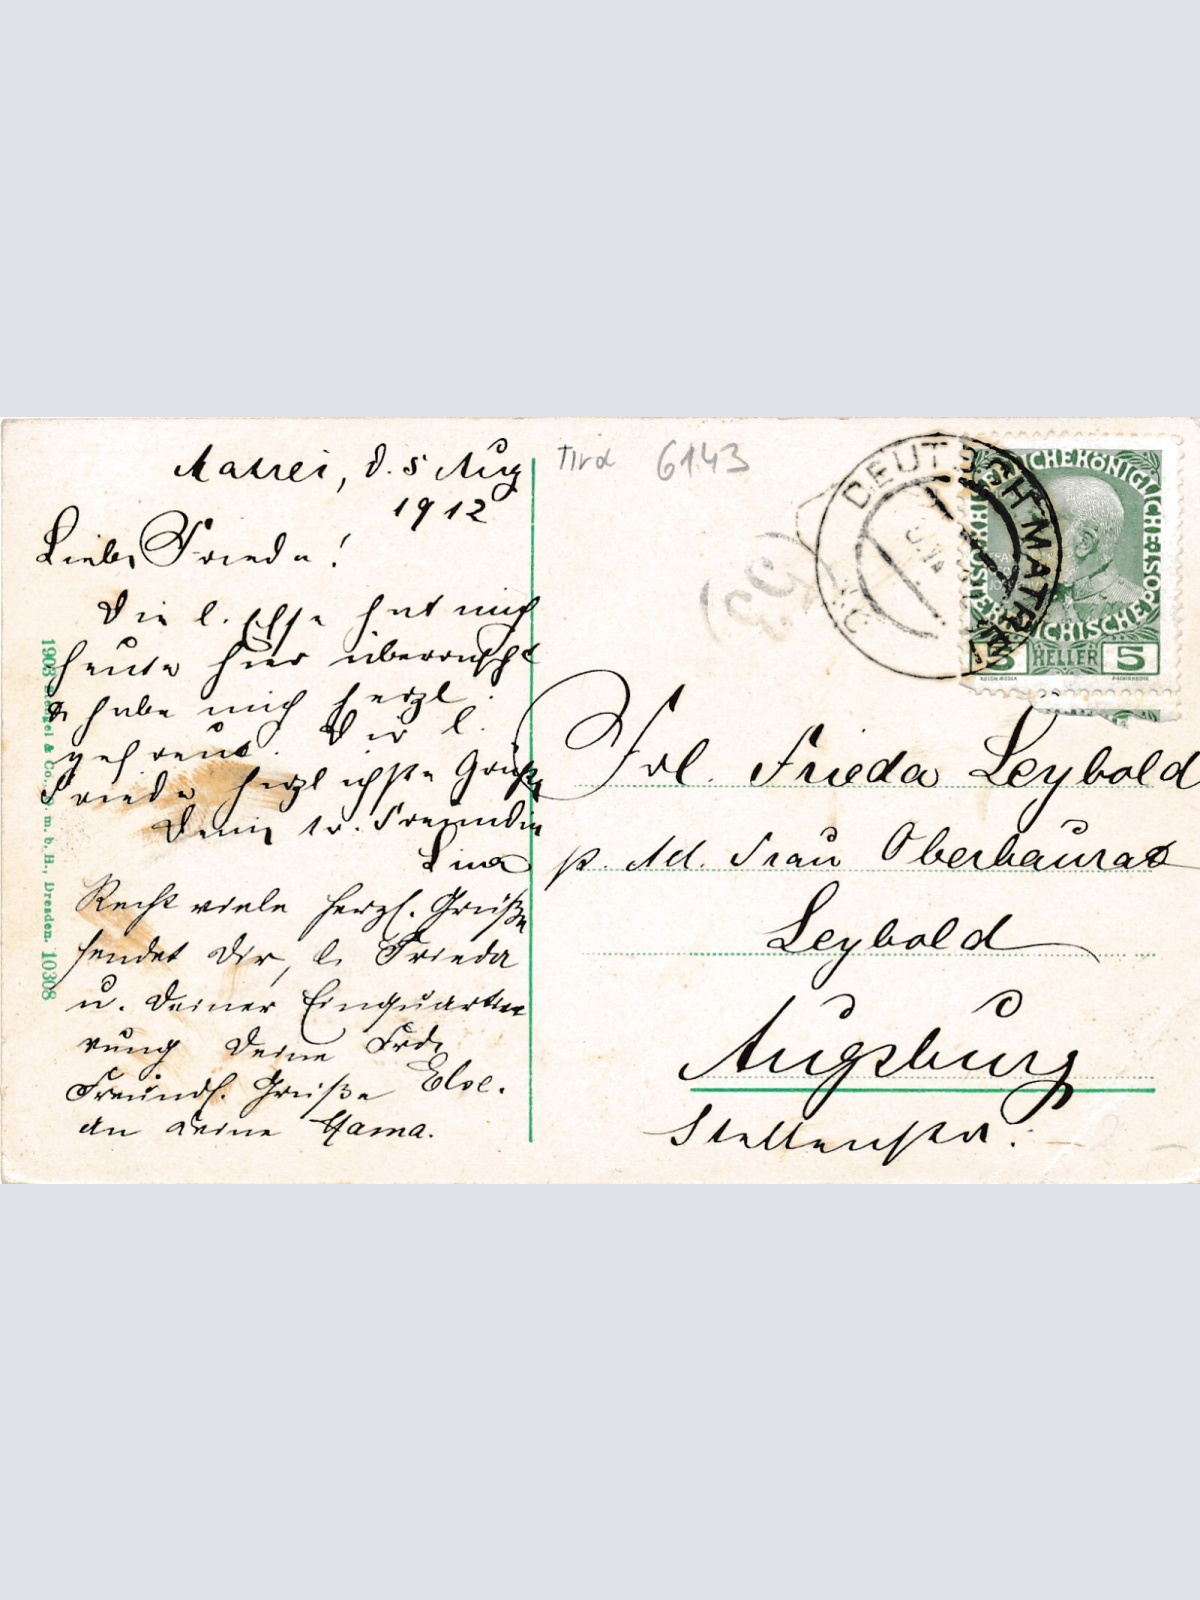 Matrei, d. 5 Aug
1912
Liebe Frieda!
Die l. Else hat mich
heute hier überrascht
& habe mich herzl.
gefreut. Dir l.
Frieda herzlichste Grüße
Deine tr. Freundin
Lina
Recht viele herzl. Grüße
sendet Dir, l. Frieda
u. Deiner Einquartie
rung Deine Frdn
Else.
Freundl. Grüße
an Deine Mama.
1903 Stengel & Co., G. m. b. H., Dresden. 10308
Tirol 6143
DEUTSCH MATREI
KAISERLICHE KÖNIGLICHE ÖSTERREICHISCHE POST
5 HELLER 5
Frl. Frieda Leybold
p. Ad. Frau Oberbaurat
Leybold
Augsburg